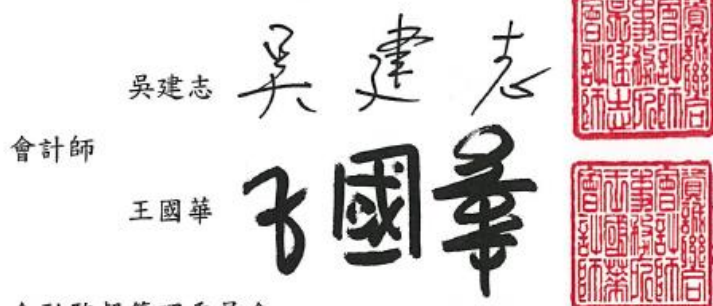 吳建志 吳建志
會計師
王國華 王國華
資誠聯合
會計師
事務所
吳建志
會計師
資誠聯合
會計師
事務所
王國華
會計師
金融監督管理委員會